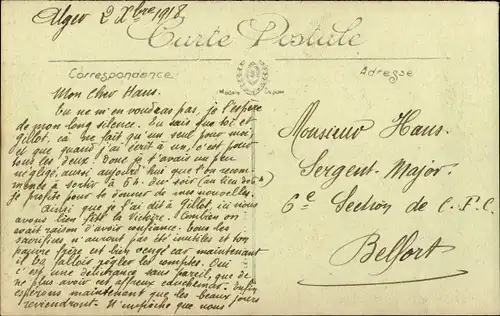 Alger 2 Xbre 1918
Carte Postale
Correspondance
Adresse
Modèle Déposé
Mon Cher Hans.
Tu ne m'en voudras pas, je l'espère
de mon long silence. Tu sais que toi et
Gillot, ça ne fait qu'un seul pour moi,
et que quand j'ai écrit à un, c'est pour
tous les deux. Donc je t'avais un peu
négligé, aussi aujourd'hui que l'on recom-
mence à sortir à 6h. du soir (au lieu de
je profite pour te donner de mes nouvelles.
Ainsi que je l'ai dit à Gillot, ici nous
avons bien fêté la Victoire. Combien on
avait raison d'avoir confiance. Tous les
sacrifices, n'auront pas été inutiles et ton
pauvre frère est bien vengé car maintenant
il va falloir régler les comptes. Oui
c'est une délivrance sans pareil, que de
ne plus avoir cet affreux cauchemar. Enfin
espérons maintenant que les beaux jours
reviendront. N'empêche que nous
Monsieur Hans.
Sergent-Major.
6e Section de C.F.C.
Belfort